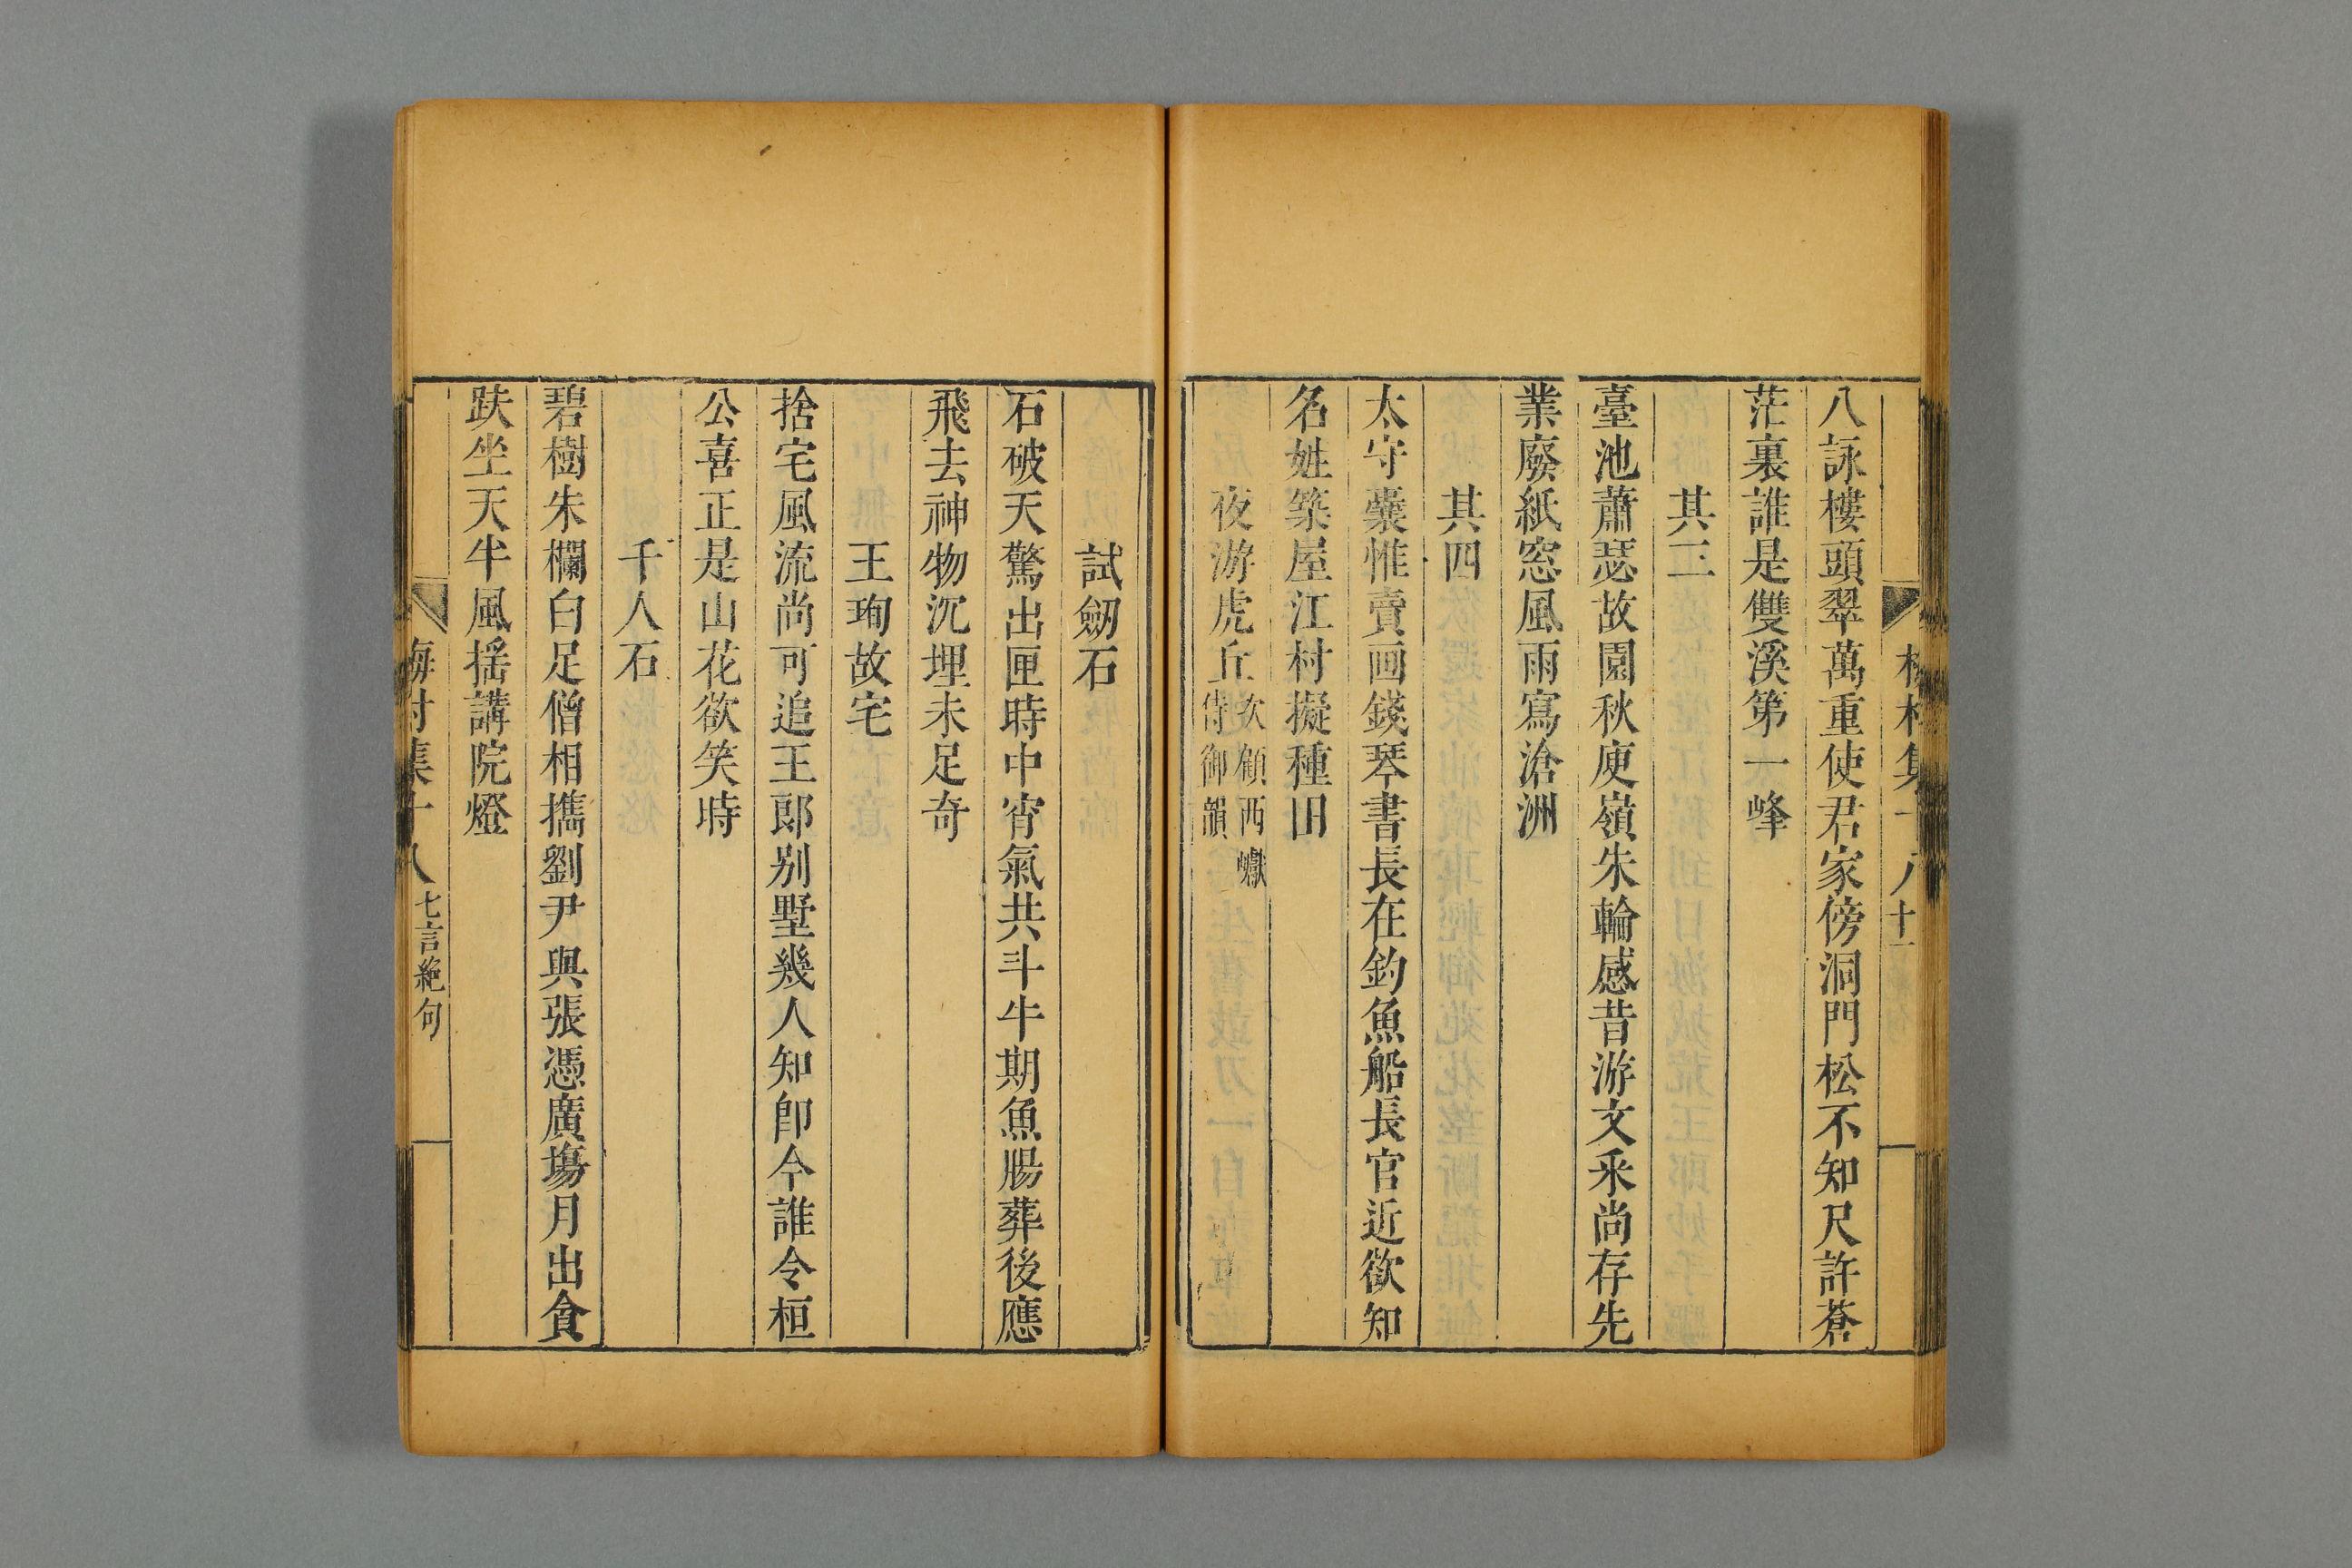 梅村集十八 十一
八詠樓頭翠萬重使君家傍洞門松不知尺許蒼
茫裏誰是雙溪第一峰
其三
臺池蕭瑟故園秋庾嶺朱輪感昔游文釆尚存先
業廢紙窓風雨寫滄洲
其四
太守囊惟賣画錢琴書長在釣魚船長官近欲知
名姓築屋江村擬種田
夜游虎丘次顧西巘侍御韻
試劒石
石破天驚出匣時中宵氣共斗牛期魚腸葬後應
飛去神物沉埋未足奇
王珣故宅
捨宅風流尚可追王郎别墅幾人知即今誰令桓
公喜正是山花欲笑時
千人石
碧樹朱欄白足僧相攜劉尹與張憑廣場月出貪
趺坐天半風搖講院燈
梅村集十八 七言絶句